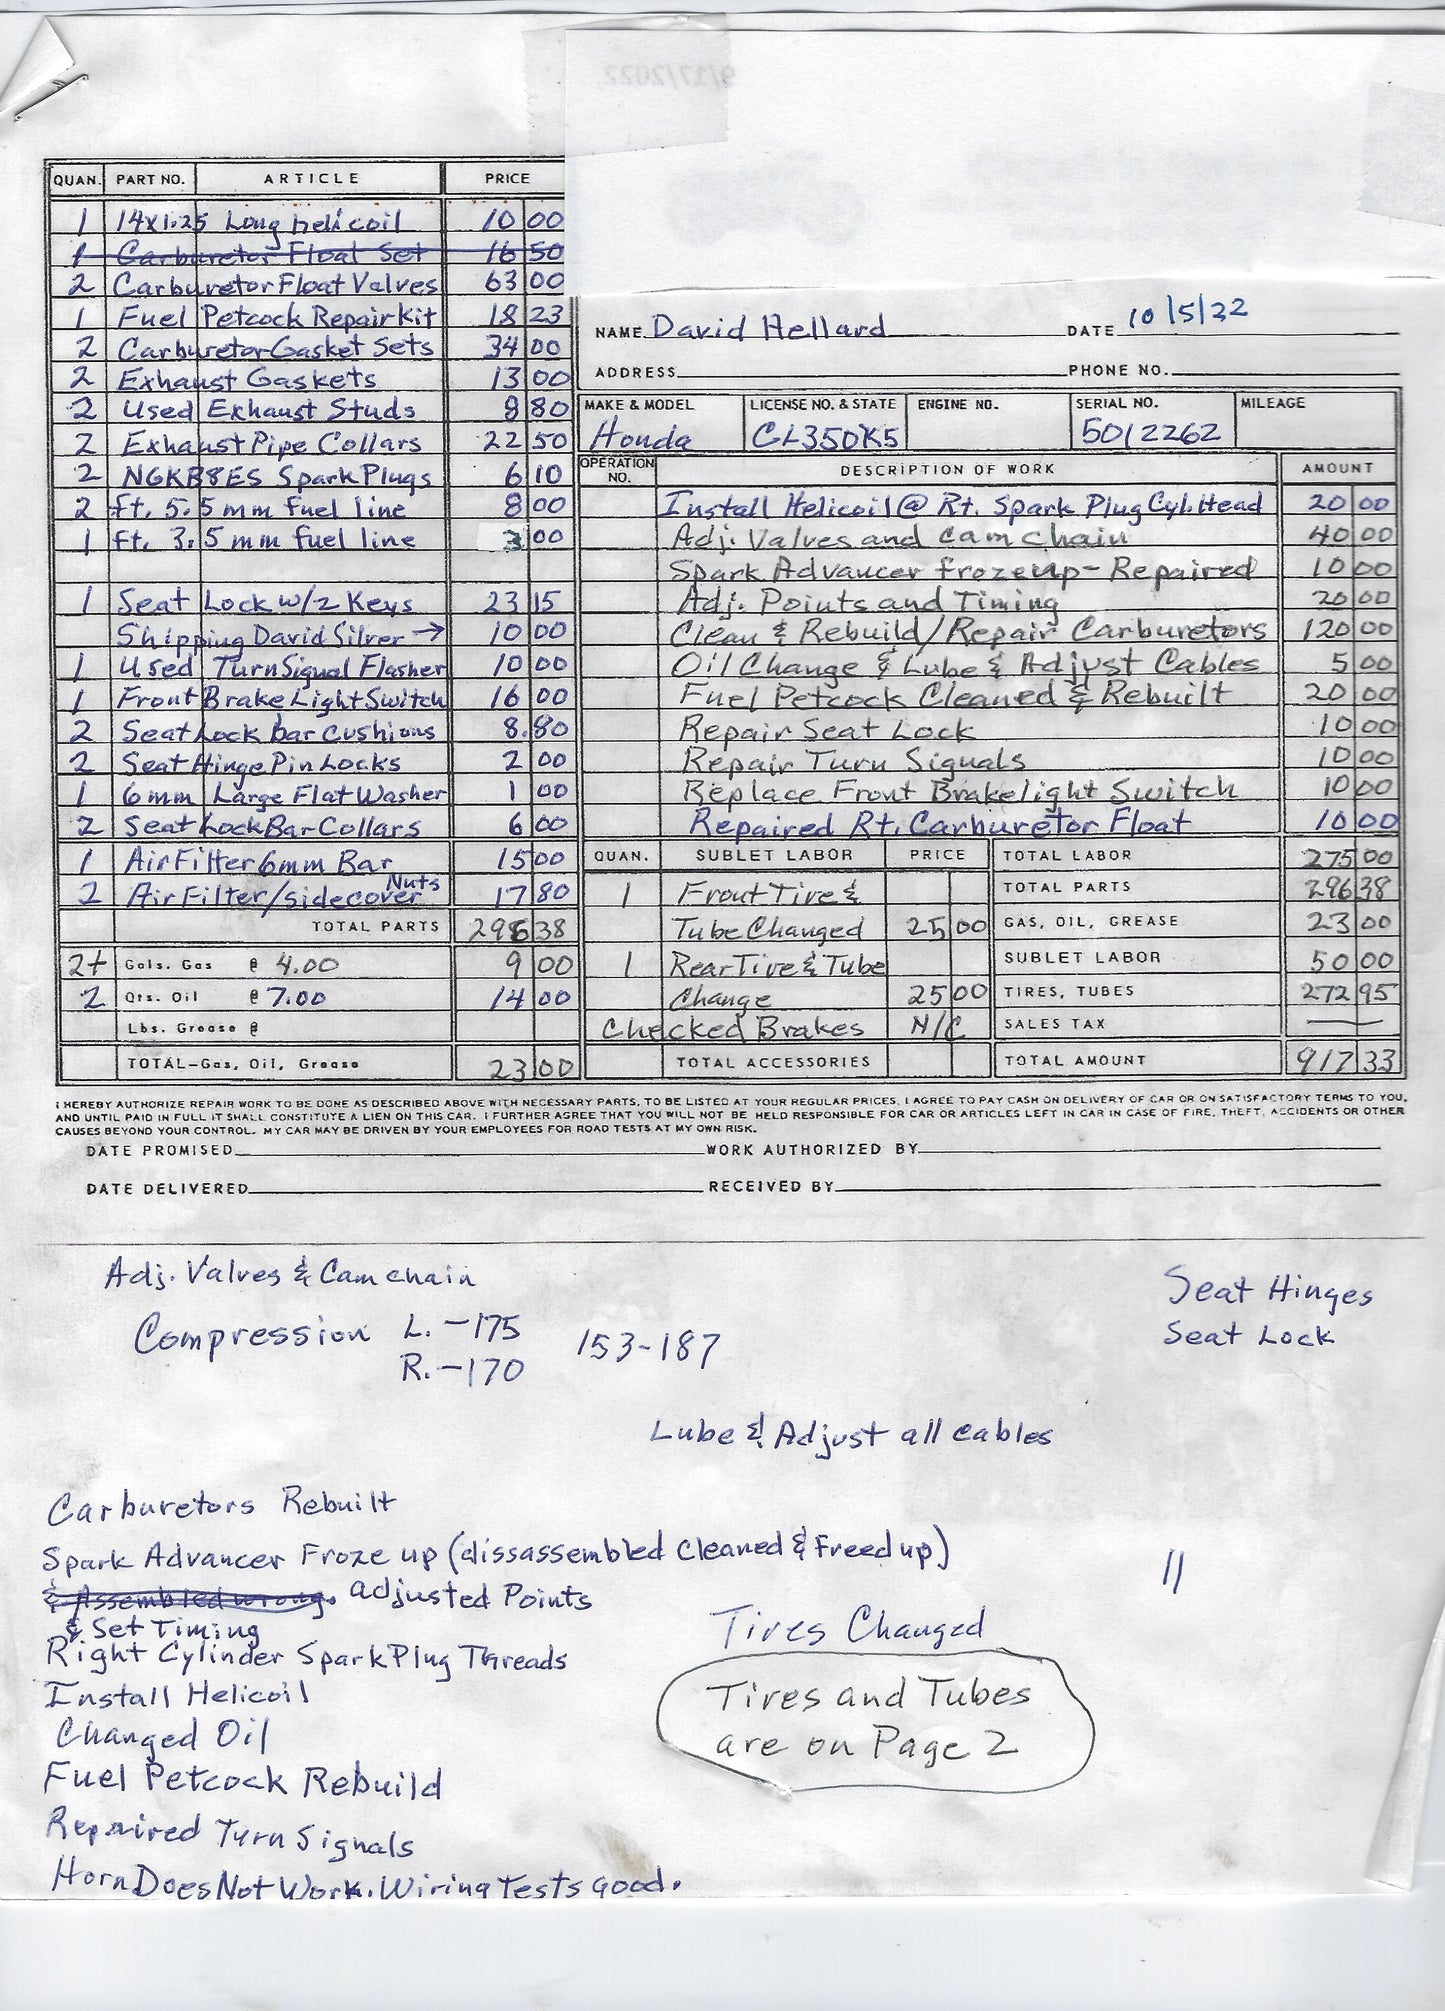 QUAN. PART NO. ARTICLE PRICE
1 14x1.25 Long helicoil 10 00
1 Carburetor Float Set 16 50
2 Carburetor Float Valves 63 00
1 Fuel Petcock Repair Kit 18 23
2 Carburetor Gasket Sets 34 00
2 Exhaust Gaskets 13 00
2 Used Exhaust Studs 8 80
2 Exhaust Pipe Collars 22 50
2 NGKB8ES Spark Plugs 6 10
2 ft. 5.5 mm fuel line 8 00
1 ft. 3.5 mm fuel line 3 00
1 Seat Lock w/2 Keys 23 15
Shipping David Silver → 10 00
1 Used Turn Signal Flasher 10 00
1 Front Brake Light Switch 16 00
2 Seat Lock bar cushions 8.80
2 Seat Hinge Pin Locks 2 00
1 6mm Large Flat Washer 1 00
2 Seat Lock Bar Collars 6 00
1 Air Filter 6mm Bar 15 00
2 Air Filter/sidecover Nuts 17 80
TOTAL PARTS 296 38
2+ Gals. Gas @ 4.00 9 00
2 Qts. Oil @ 7.00 14 00
Lbs. Grease @
TOTAL-Gas, Oil, Grease 23 00
9/17/2022
NAME David Hellard DATE 10/5/22
ADDRESS PHONE NO.
MAKE & MODEL LICENSE NO. & STATE ENGINE NO. SERIAL NO. MILEAGE
Honda CL350K5 5012262
OPERATION NO. DESCRIPTION OF WORK AMOUNT
Install Helicoil @ Rt. Spark Plug Cyl. Head 20 00
Adj. Valves and cam chain 40 00
Spark Advancer froze up - Repaired 10 00
Adj. Points and Timing 20 00
Clean & Rebuild/Repair Carburetors 120 00
Oil Change & Lube & Adjust Cables 5 00
Fuel Petcock Cleaned & Rebuilt 20 00
Repair Seat Lock 10 00
Repair Turn Signals 10 00
Replace Front Brakelight Switch 10 00
Repaired Rt. Carburetor Float 10 00
QUAN. SUBLET LABOR PRICE
1 Front Tire &
Tube Changed 25 00
1 Rear Tire & Tube
Change 25 00
Checked Brakes N/C
TOTAL ACCESSORIES
TOTAL LABOR 275 00
TOTAL PARTS 296 38
GAS, OIL, GREASE 23 00
SUBLET LABOR 50 00
TIRES, TUBES 272 95
SALES TAX —
TOTAL AMOUNT 917 33
I HEREBY AUTHORIZE REPAIR WORK TO BE DONE AS DESCRIBED ABOVE WITH NECESSARY PARTS, TO BE LISTED AT YOUR REGULAR PRICES. I AGREE TO PAY CASH ON DELIVERY OF CAR OR ON SATISFACTORY TERMS TO YOU,
AND UNTIL PAID IN FULL IT SHALL CONSTITUTE A LIEN ON THIS CAR. I FURTHER AGREE THAT YOU WILL NOT BE HELD RESPONSIBLE FOR CAR OR ARTICLES LEFT IN CAR IN CASE OF FIRE, THEFT, ACCIDENTS OR OTHER
CAUSES BEYOND YOUR CONTROL. MY CAR MAY BE DRIVEN BY YOUR EMPLOYEES FOR ROAD TESTS AT MY OWN RISK.
DATE PROMISED WORK AUTHORIZED BY
DATE DELIVERED RECEIVED BY
Adj. Valves & Cam chain
Compression L. - 175
R. - 170
153-187
Seat Hinges
Seat Lock
Lube & Adjust all cables
Carburetors Rebuilt
Spark Advancer Froze up (dissassembled Cleaned & Freed up)
& Assembled wrong. adjusted Points
& Set Timing
Right Cylinder Spark Plug Threads
Install Helicoil
Changed Oil
Fuel Petcock Rebuild
Repaired Turn Signals
Horn Does Not Work. Wiring Tests good.
11
Tires Changed
Tires and Tubes
are on Page 2